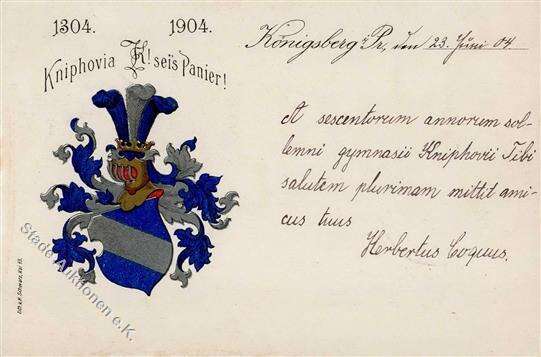 1304. 1904.
Kniphovia K! seis Panier!
Königsberg i/Pr, den 23. Juni 04
A sescentorum annorum sol-
lemni gymnasii Kniphovii Tibi
salutem plurimam mittit ami-
cus tuus
Herbertus Coquus.
Stade Auktionen e.K.